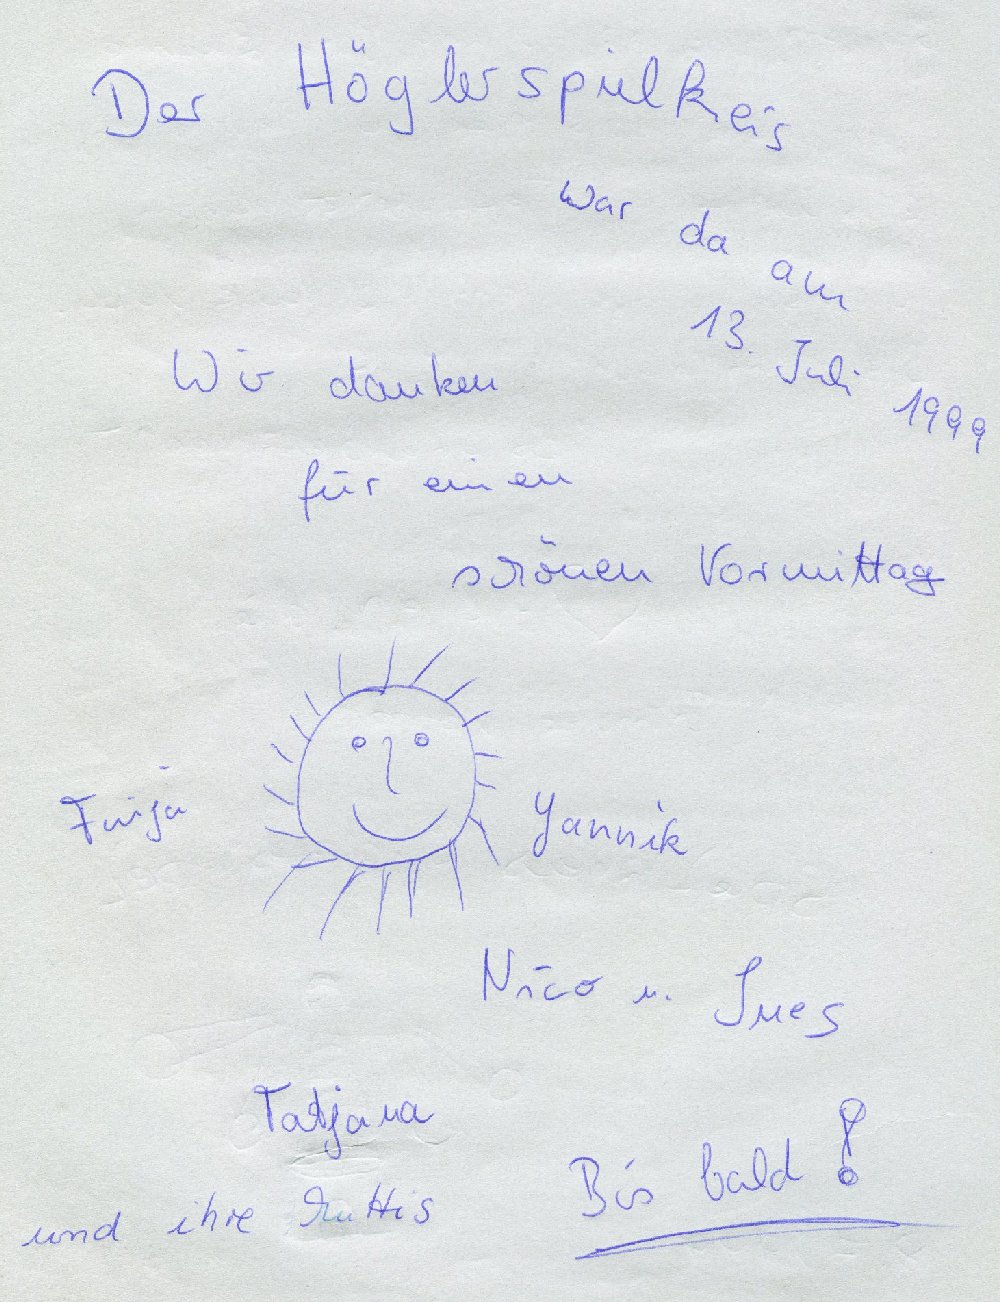 Der Höglerspielkreis
war da am
13. Juli 1999
Wir danken
für einen
schönen Vormittag
Yannik
Nico u. Ines
Tatjana
und ihre Muttis
Bis bald!